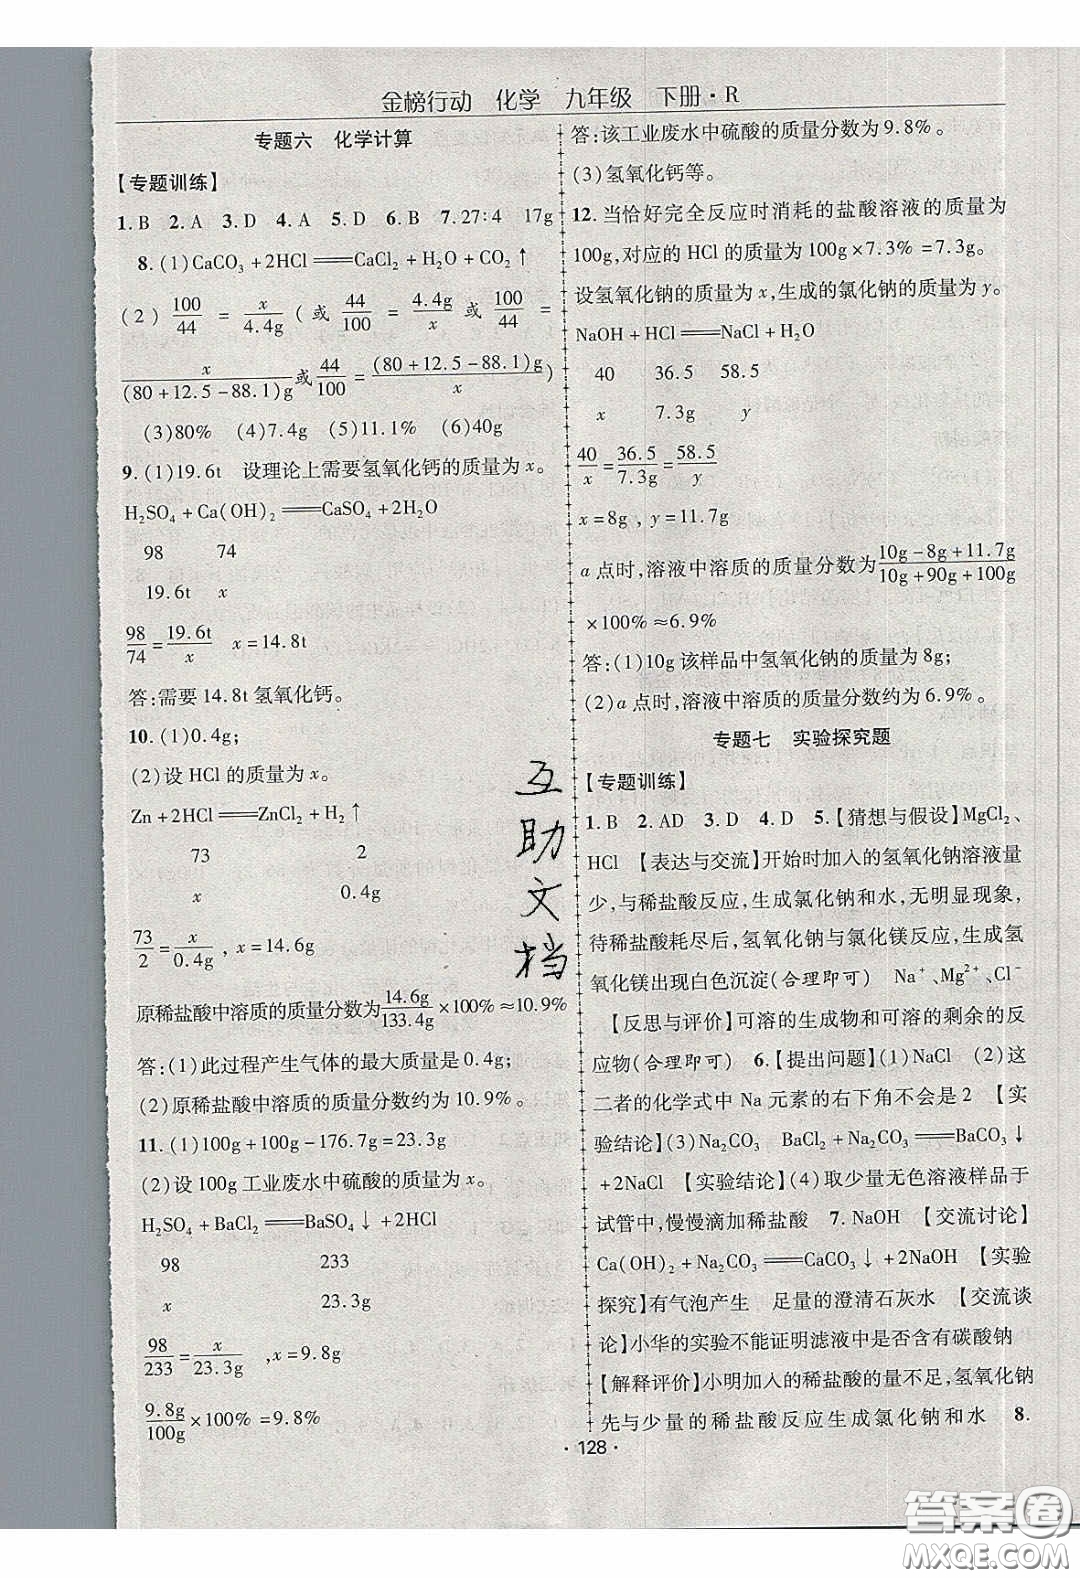 金榜行动 化学 九年级 下册·R
专题六 化学计算
【专题训练】
1. B 2. A 3. D 4. A 5. D 6. B 7. 27:4 17g
8. (1)CaCO₃+2HCl══CaCl₂+H₂O+CO₂↑
(2) 100/44 = x/4.4g (或 44/100 = 4.4g/x 或 100/44 =
x/(80+12.5-88.1)g 或 44/100 = (80+12.5-88.1)g/x)
(3)80% (4)7.4g (5)11.1% (6)40g
9. (1)19.6t 设理论上需要氢氧化钙的质量为x。
H₂SO₄+Ca(OH)₂══CaSO₄+2H₂O
98 74
19.6t x
98/74=19.6t/x x=14.8t
答:需要14.8t氢氧化钙。
10. (1)0.4g;
(2)设HCl的质量为x。
Zn+2HCl══ZnCl₂+H₂↑
73 2
x 0.4g
73/2=x/0.4g , x=14.6g
原稀盐酸中溶质的质量分数为14.6g/133.4g×100%≈10.9%
答:(1)此过程产生气体的最大质量是0.4g;
(2)原稀盐酸中溶质的质量分数约为10.9%。
11. (1)100g+100g-176.7g=23.3g
(2)设100g工业废水中硫酸的质量为x。
H₂SO₄+BaCl₂══BaSO₄↓+2HCl
98 233
x 23.3g
98/233=x/23.3g ,x=9.8g
9.8g/100g×100%=9.8%
答:该工业废水中硫酸的质量分数为9.8%。
(3)氢氧化钙等。
12. 当恰好完全反应时消耗的盐酸溶液的质量为
100g,对应的HCl的质量为100g×7.3%=7.3g。
设氢氧化钠的质量为x,生成的氯化钠的质量为y。
NaOH+HCl══NaCl+H₂O
40 36.5 58.5
x 7.3g y
40/x=36.5/7.3g=58.5/y
x=8g , y=11.7g
a点时,溶液中溶质的质量分数为10g-8g+11.7g/10g+90g+100g
×100%≈6.9%
答:(1)10g该样品中氢氧化钠的质量为8g;
(2)a点时,溶液中溶质的质量分数约为6.9%。
专题七 实验探究题
【专题训练】
1. B 2. AD 3. D 4. D 5.【猜想与假设】MgCl₂、
HCl 【表达与交流】开始时加入的氢氧化钠溶液量
少,与稀盐酸反应,生成氯化钠和水,无明显现象,
待稀盐酸耗尽后,氢氧化钠与氯化镁反应,生成氢
氧化镁出现白色沉淀(合理即可) Na⁺、Mg²⁺、Cl⁻
【反思与评价】可溶的生成物和可溶的剩余的反
应物(合理即可) 6.【提出问题】(1)NaCl (2)这
二者的化学式中Na元素的右下角不会是2 【实
验结论】(3)Na₂CO₃ BaCl₂+Na₂CO₃══BaCO₃↓
+2NaCl 【实验结论】(4)取少量无色溶液样品于
试管中,慢慢滴加稀盐酸 7. NaOH 【交流讨论】
Ca(OH)₂+Na₂CO₃══CaCO₃↓+2NaOH 【实验
探究】有气泡产生 足量的澄清石灰水 【交流谈
论】小华的实验不能证明滤液中是否含有碳酸钠
【解释评价】小明加入的稀盐酸的量不足,氢氧化钠
先与少量的稀盐酸反应生成氯化钠和水 8.
互助文档
·128·
答案圈
MXQE.COM